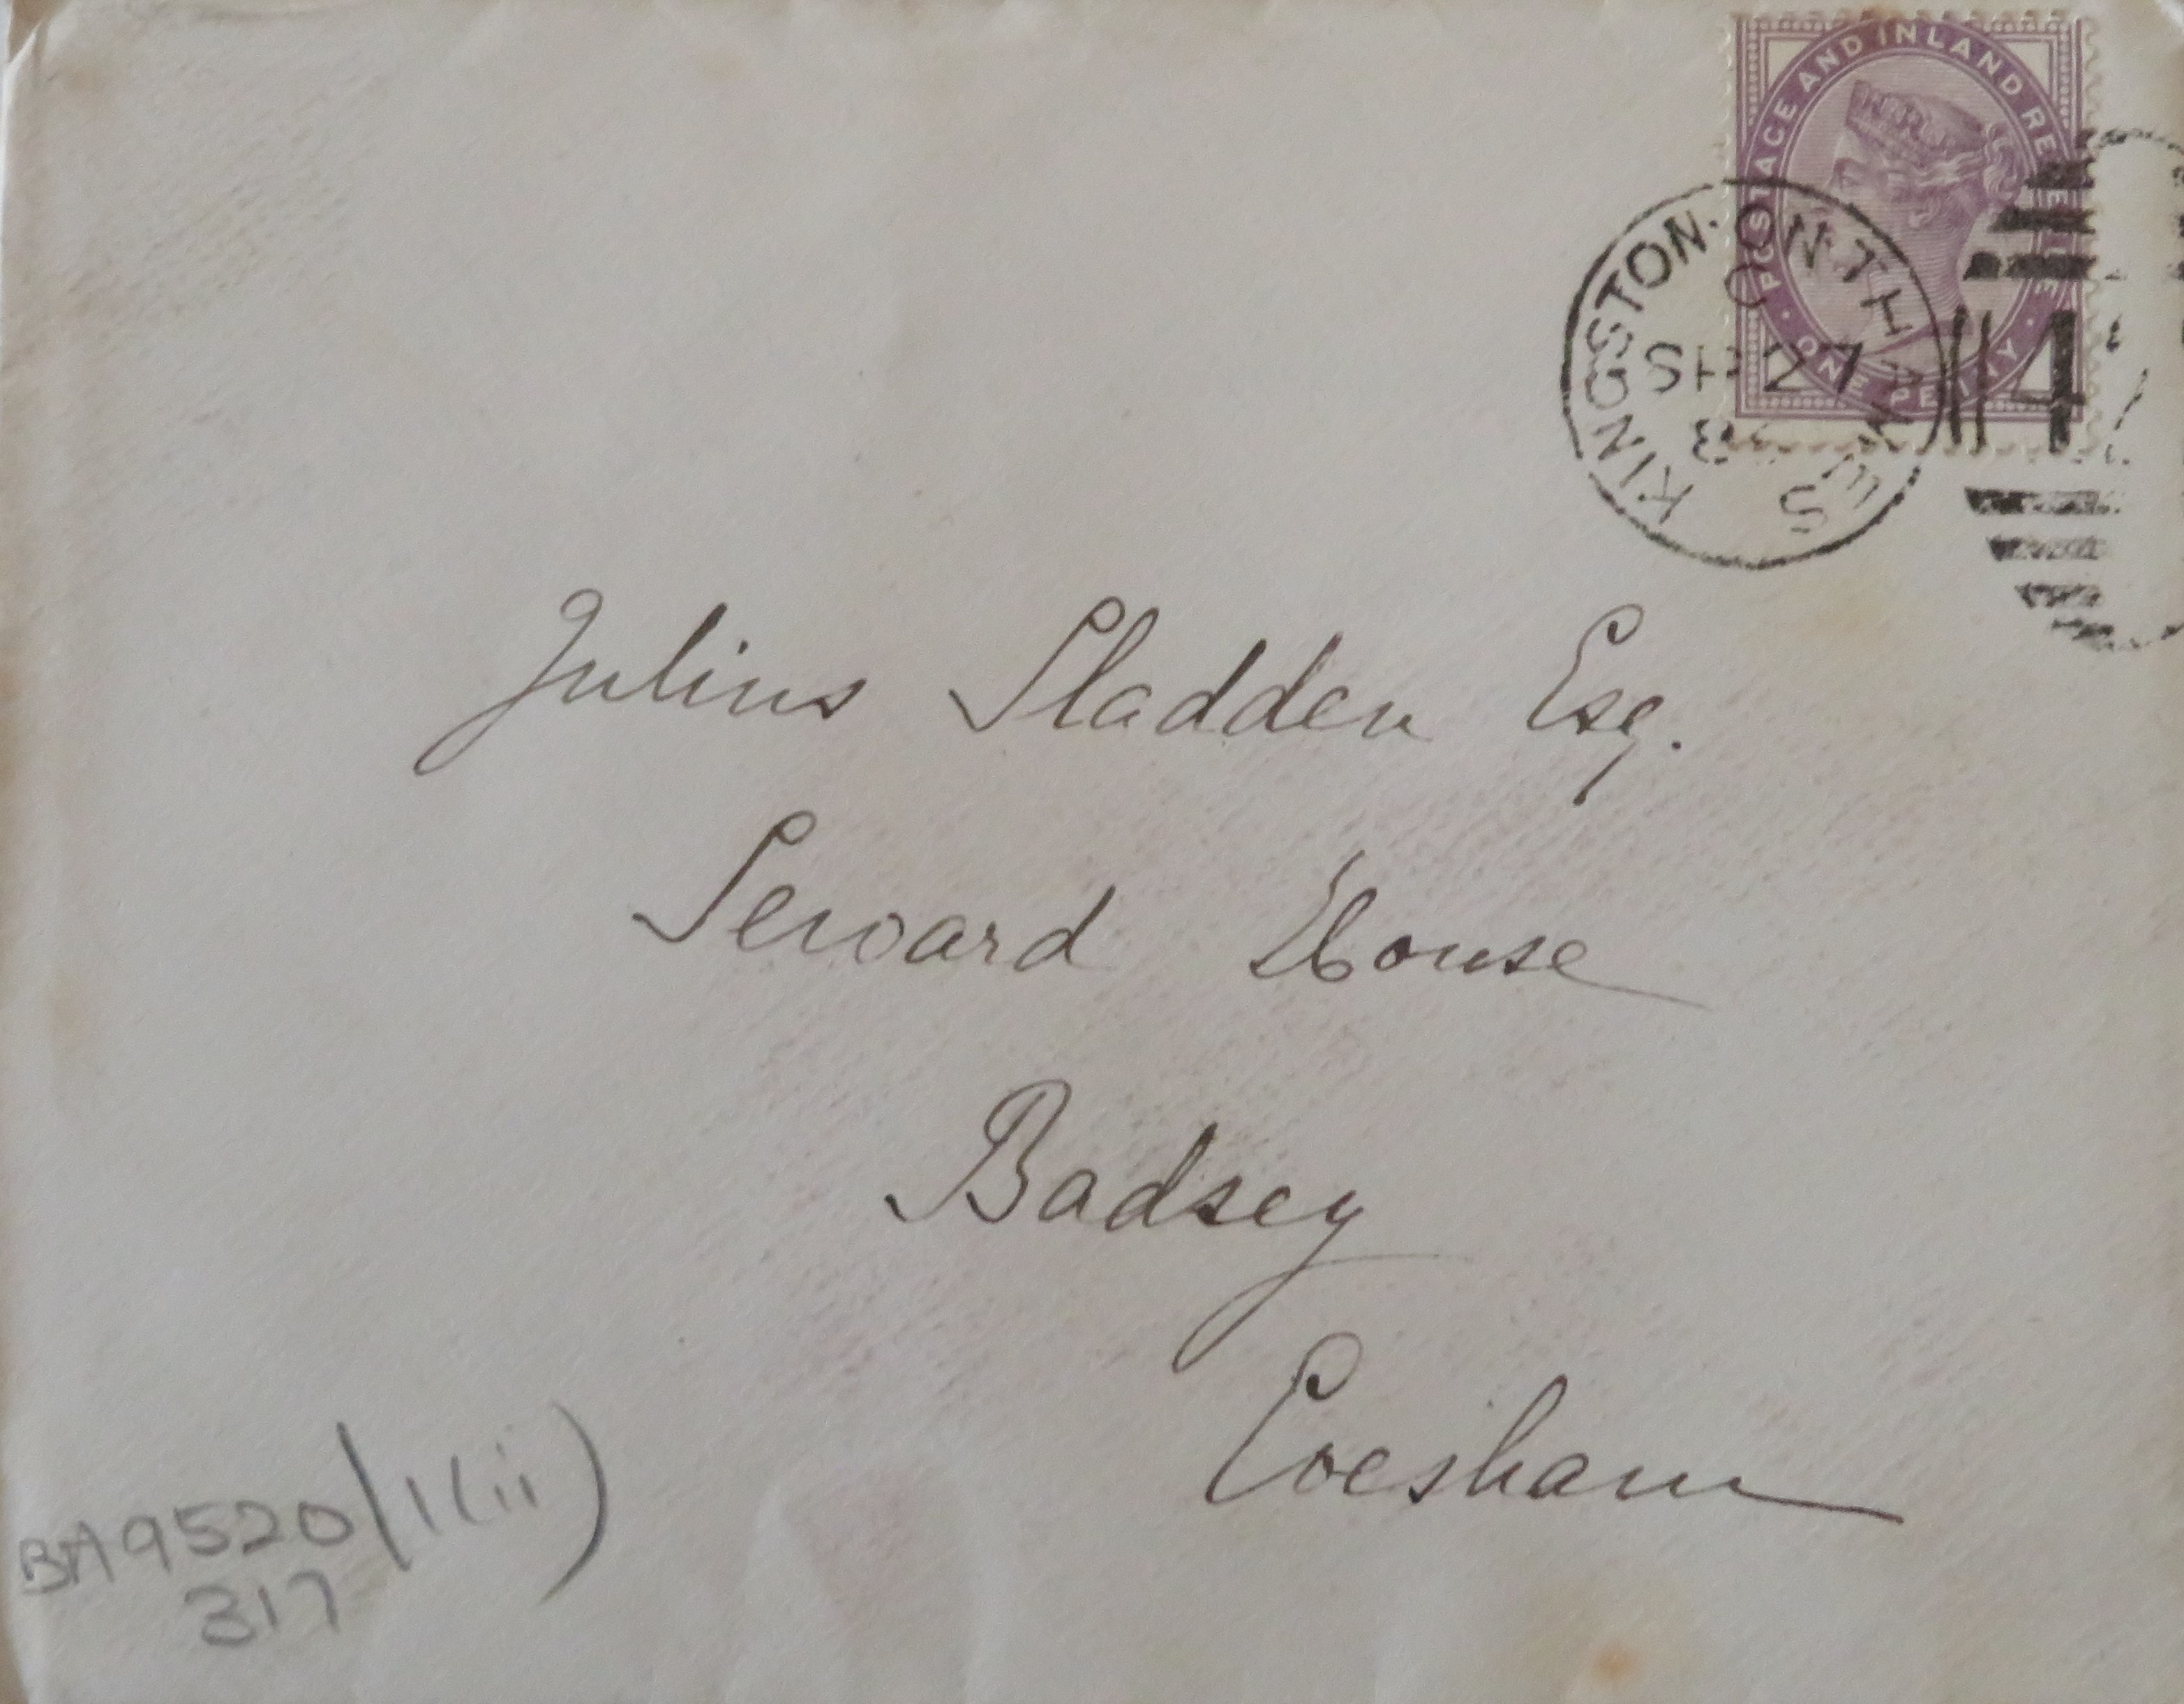 POSTAGE AND INLAND REVENUE
ONE PENNY
KINGSTON·ON THAMES
C
SP 27
4
Julius Sladden Esq.
Seward House
Badsey
Evesham
BA9520/1(ii)
317